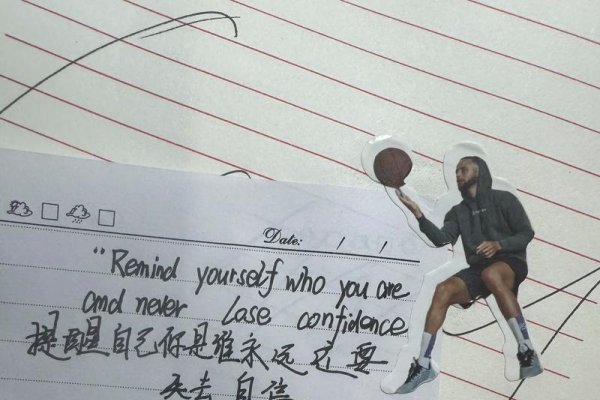 Date: / /
"Remind yourself who you are
and never lose confidence
提醒自己你是谁永远 要
失去 自信